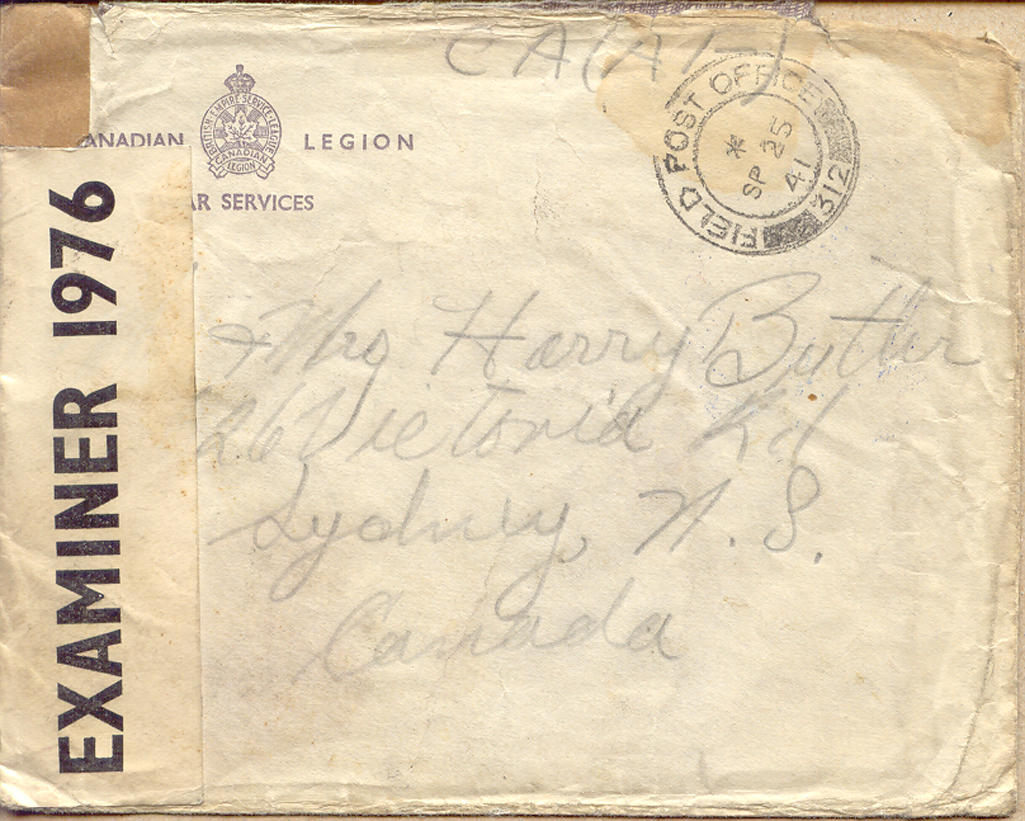 CA(A)
ANADIAN LEGION
BRITISH·EMPIRE·SERVICE·LEAGUE
CANADIAN
LEGION
AR SERVICES
FIELD POST OFFICE
*
SP 25
41
312
EXAMINER 1976
Mrs Harry Butler
26 Victoria Rd
Sydney, N. S.
Canada